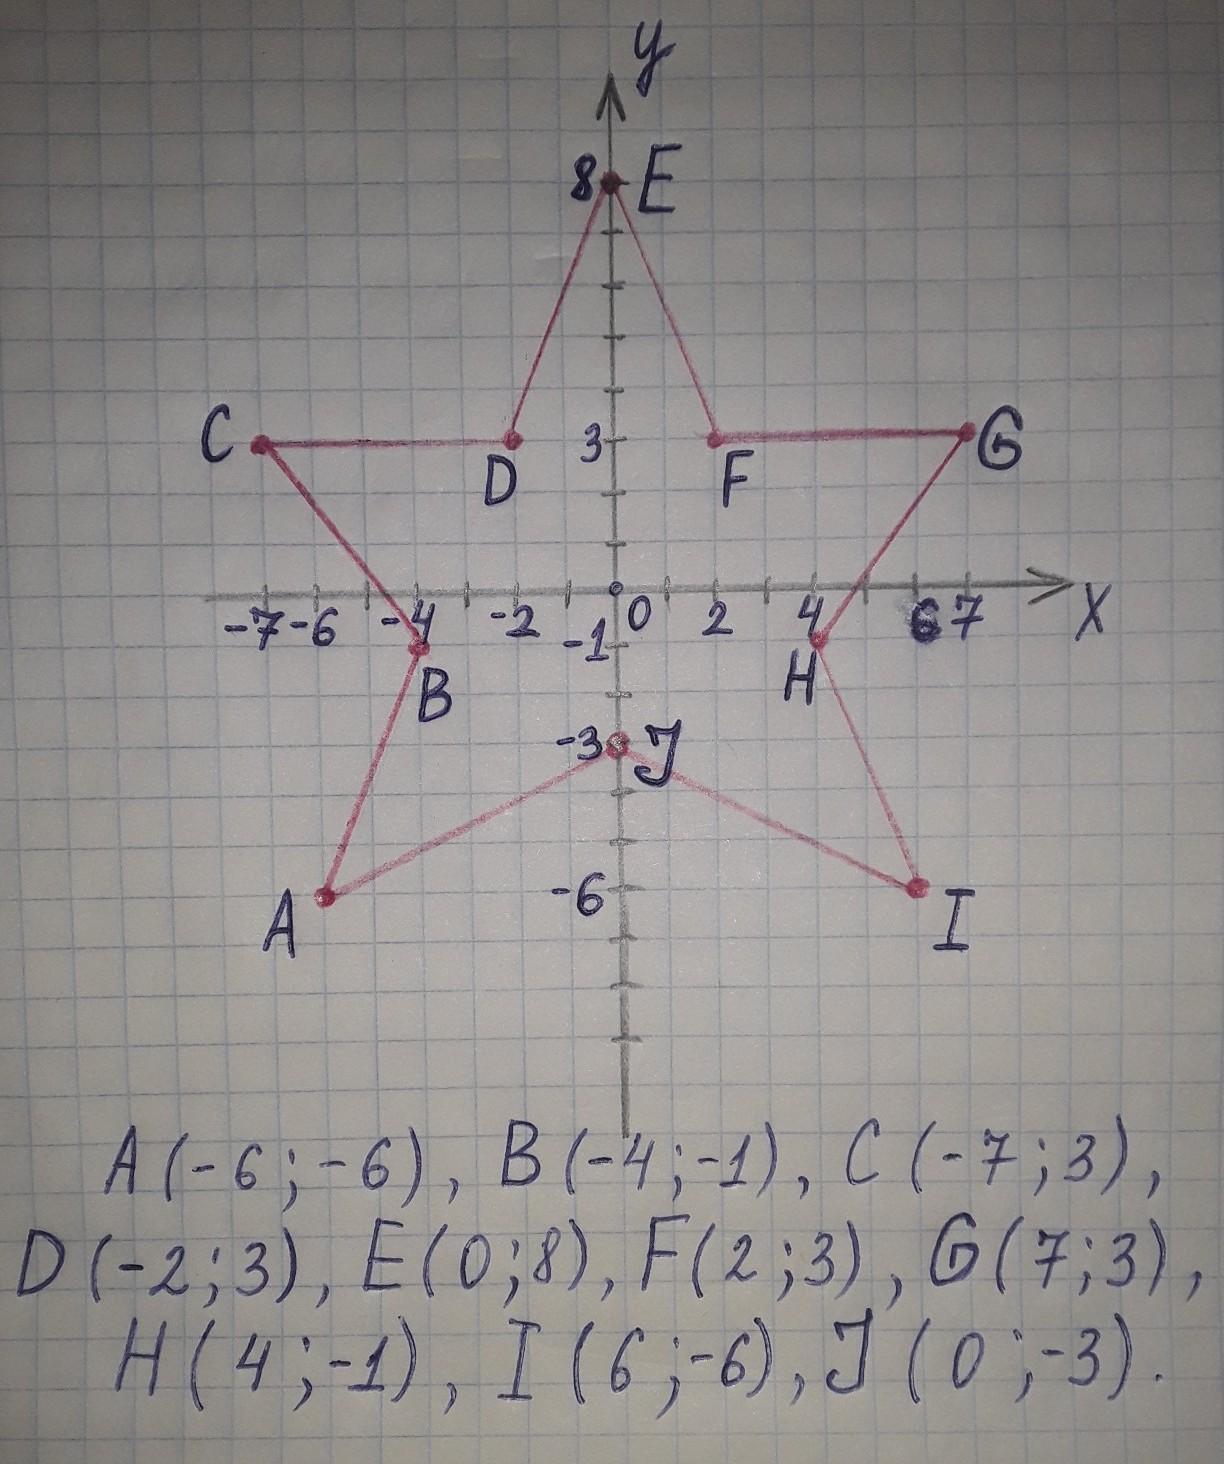 y
8 E
C D 3 F G
-7 -6 -4 -2 0 2 4 6 7 X
-1
B H
-3 J
-6
A I
A(-6;-6), B(-4;-1), C(-7;3),
D(-2;3), E(0;8), F(2;3), G(7;3),
H(4;-1), I(6;-6), J(0;-3).